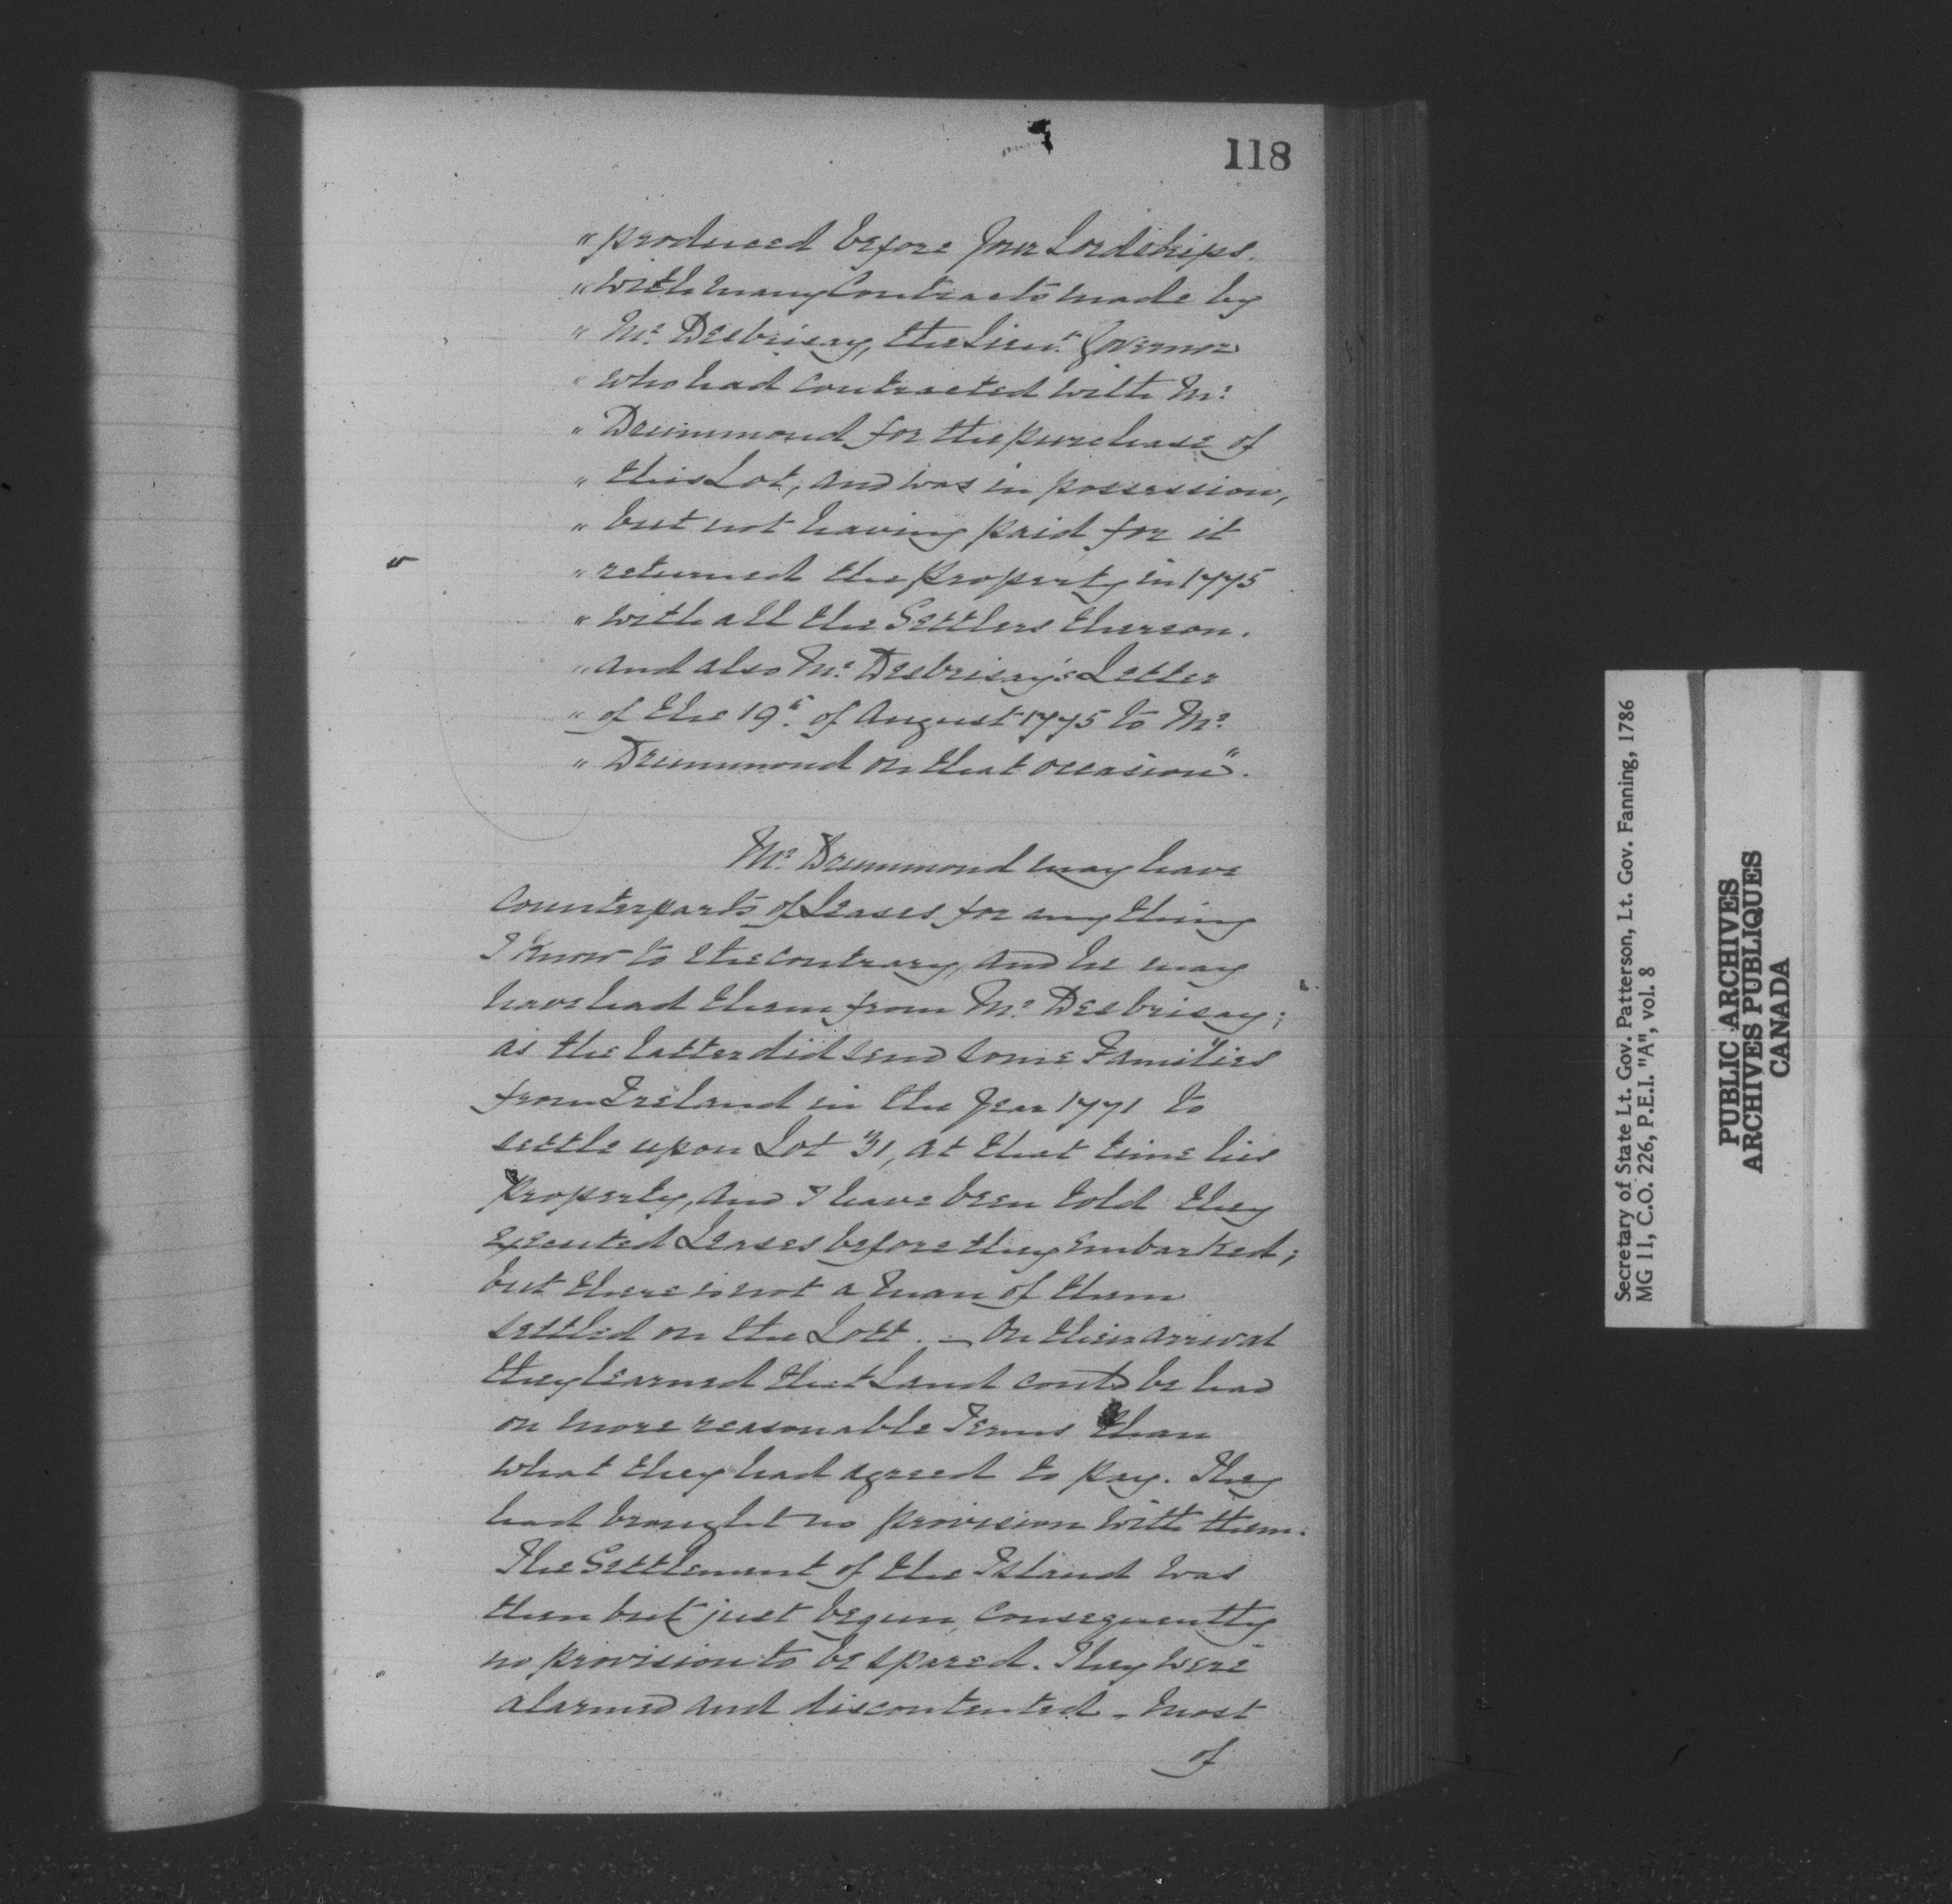 118
" produced before your Lordships.
" with many Contracts made by
" Mr. Desbrisay, the Lieut. Governor
" who had contracted with Mr.
" Drummond for the purchase of
" this Lot, and was in possession,
" but not having paid for it
" returned the property in 1775
" with all the Settlers thereon.
" and also Mr. Desbrisay's Letter
" of the 19th. of August 1775 to Mr.
" Drummond on that occasion".
Mr. Drummond may have
Counterparts of Leases for any thing
I know to the contrary, and he may
have had them from Mr. Desbrisay;
as the latter did send some Families
from Ireland in the Year 1771 to
settle upon Lot 31, at that time his
Property, and I have been told they
executed Leases before they embarked;
but there is not a man of them
settled on the Lott. — On their arrival
they learned that Land could be had
on more reasonable Terms than
what they had agreed to pay. They
had brought no provision with them.
The Settlement of the Island was
then but just begun, consequently
no provision to be spared. They were
alarmed and discontented – most
of
Secretary of State Lt. Gov. Patterson, Lt. Gov. Fanning, 1786
MG 11, C.O. 226, P.E.I. "A", vol. 8
PUBLIC ARCHIVES
ARCHIVES PUBLIQUES
CANADA